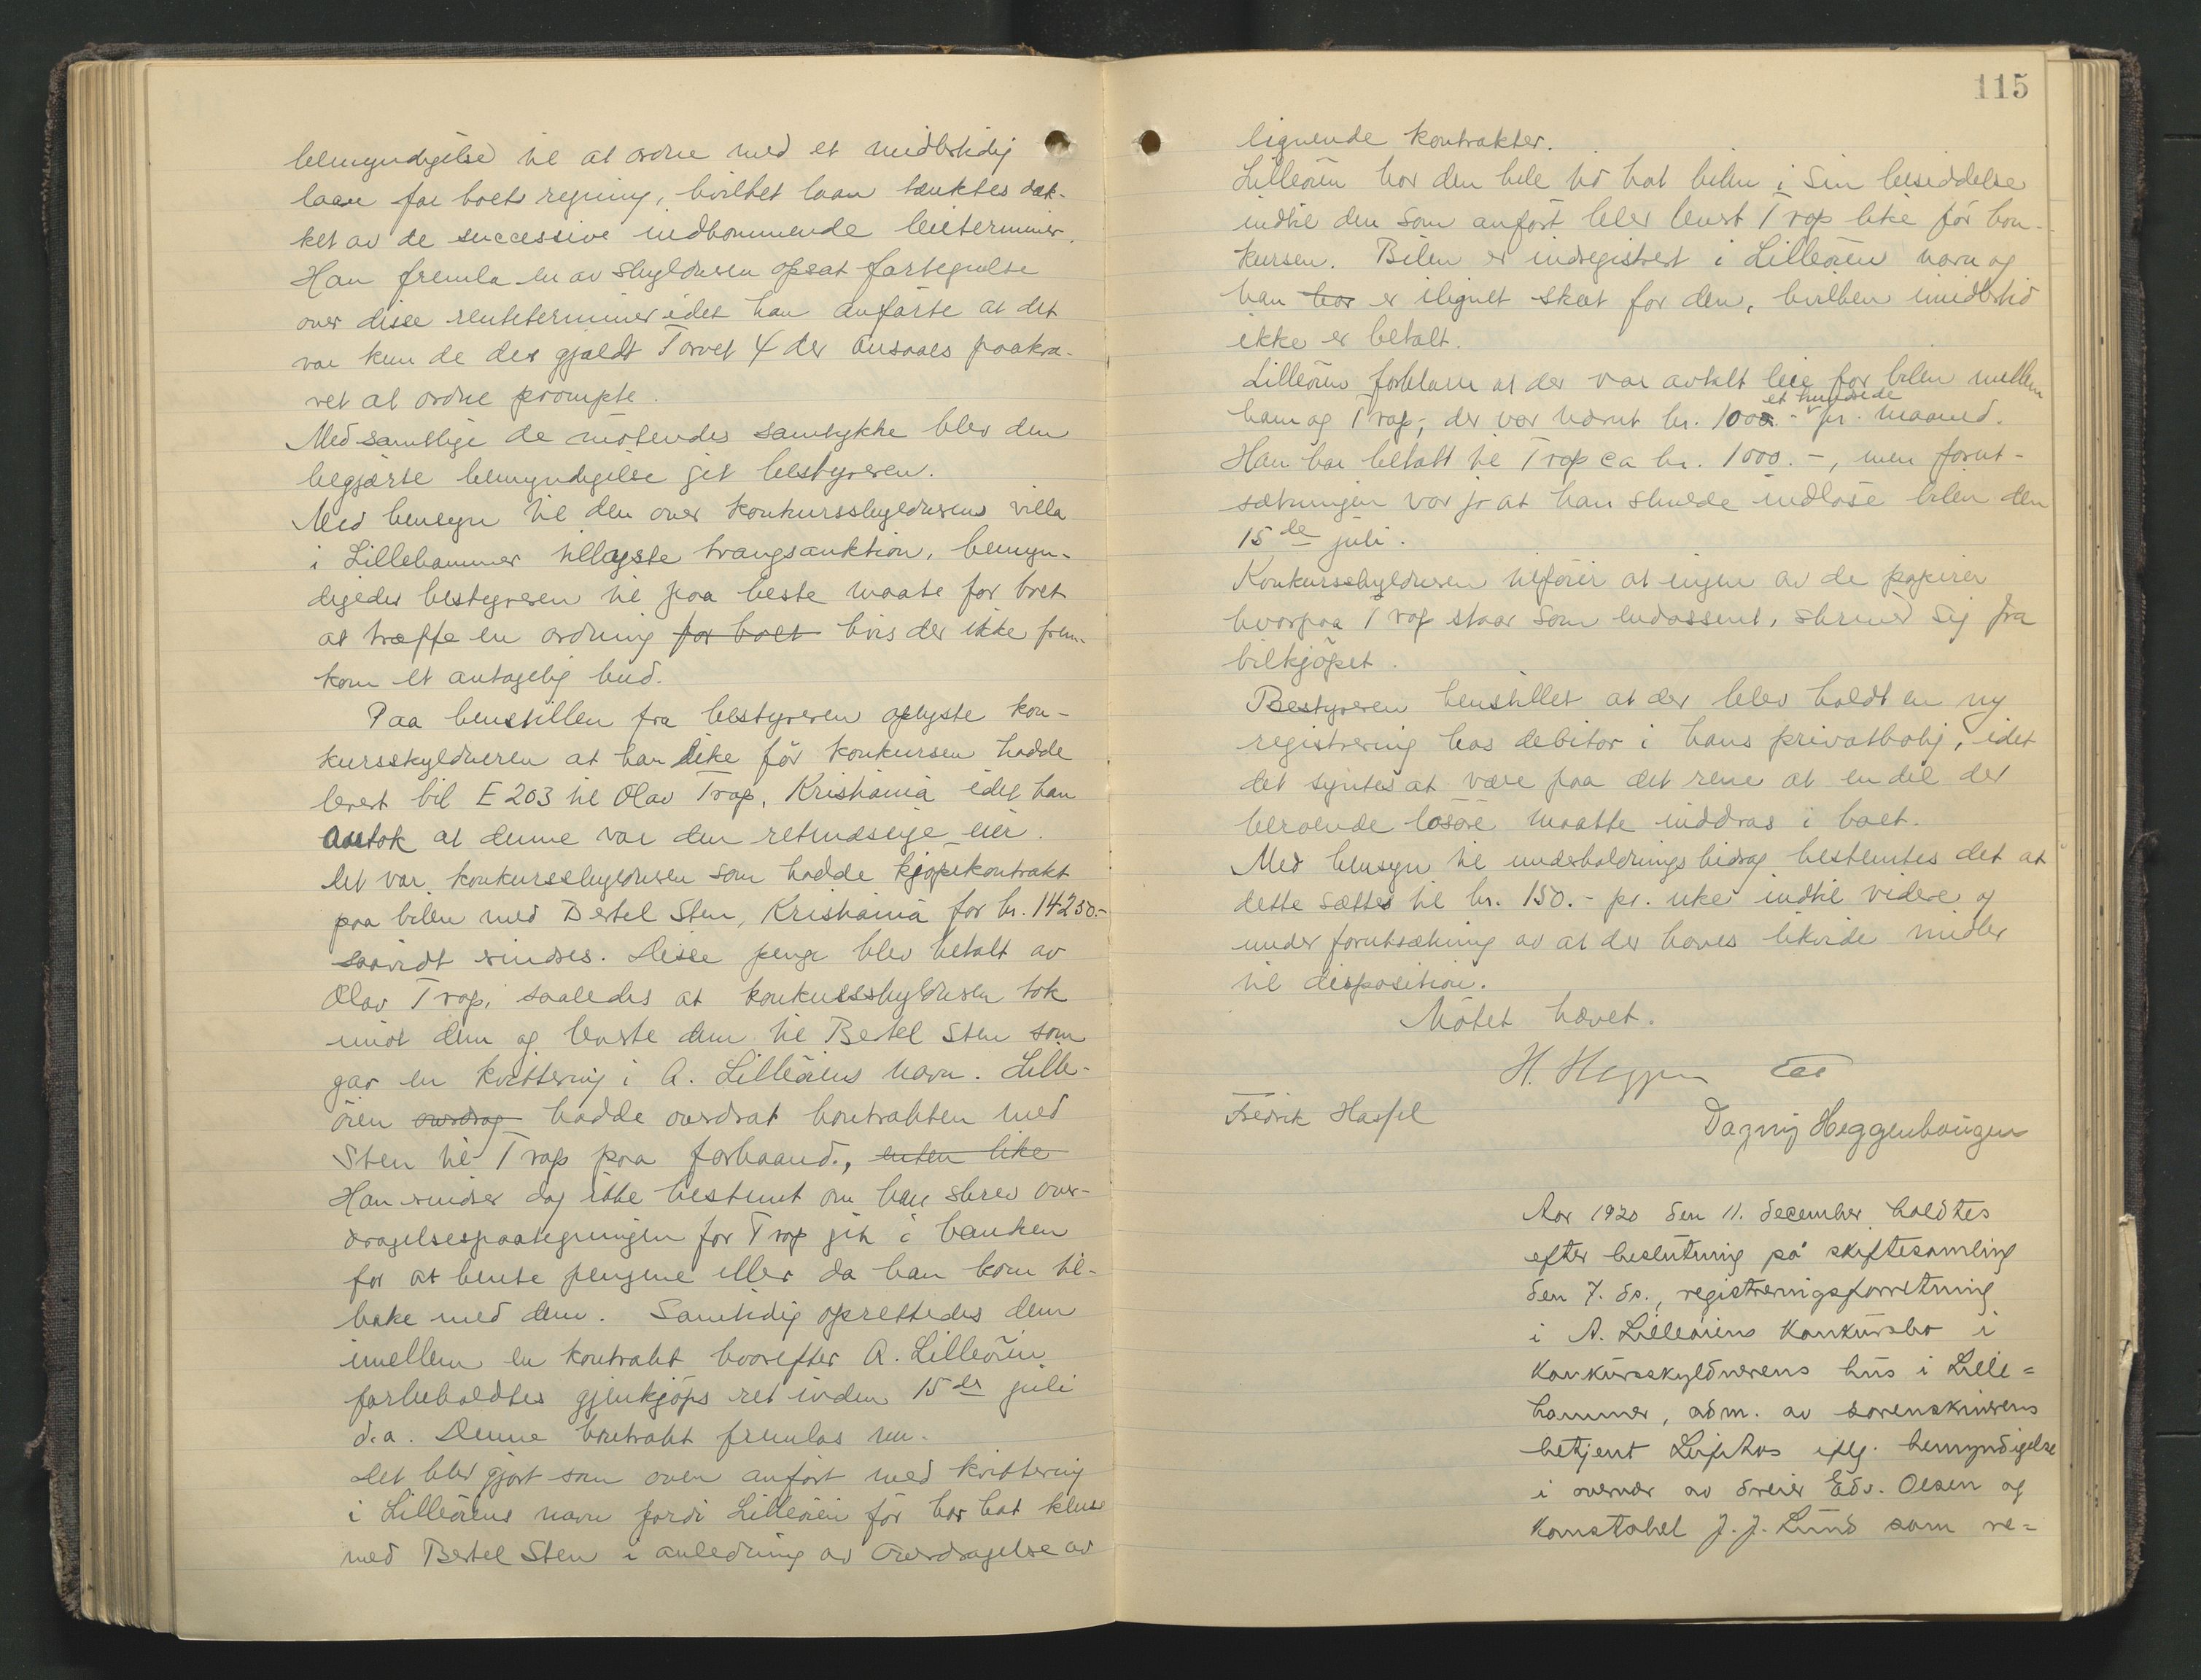 bemyndigelse til at ordne med et midlertidig
laan for boets regning, hvilket laan tænktes dæk-
ket av de successive indkommende leieterminer.
Han fremla en av skyldneren opsat fortegnelse
over disse renteterminer idet han anförte at det
var kun de der gjaldt Torvet 4 der ansaaes paakræ-
vet at ordne prompte.
Med samtlige de mötendes samtykke blev den
begjærte bemyndigelse git bestyreren.
Med hensyn til den over konkursskyldnerens villa
i Lillehammer tillyste tvangsauktion, bemyn-
digedes bestyreren til paa beste maate for boet
at træffe en ordning for boet hvis der ikke frem-
kom et antagelig bud.
Paa henstillen fra bestyreren oplyste kon-
kursskyldneren at han like för konkursen hadde
levert bil E 203 til Olav Trap, Kristiania idet han
antok at denne var den retmæssige eier.
Det var konkursskyldneren som hadde kjöpekontrakt
paa bilen med Bertel Sten, Kristiania for kr. 14250.-
saavidt erindres. Disse penge blev betalt av
Olav Trap, saaledes at konkursskyldneren tok
imot dem og leverte dem til Bertel Sten som
gav en kvittering i A. Lilleöiens navn. Lille-
öien overdrog hadde overdrat kontrakten med
Sten til Trap paa forhaand., enten like
Han erindrer dog ikke bestemt om han skrev over-
dragelsespaategningen för Trap gik i banken
for at hente pengene eller da han kom til-
bake med dem. Samtidig oprettedes dem
imellem en kontrakt hvorefter A. Lilleöien
forbeholdtes gjenkjöps ret inden 15de juli
d.a. Denne kontrakt fremlas nu.
Det blev gjort som oven anfört med kvittering
i Lilleöiens navn fordi Lilleöien för har hat kluss
med Bertel Sten i anledning av overdragelse av
115
lignende kontrakter.
Lilleöien har den hele tid hat bilen i sin besiddelse
indtil den som anfört blev levert Trap like för kon-
kursen. Bilen er indregistrert i Lilleöiens navn og
han har er ilignet skat for den, hvilken imidlertid
ikke er betalt.
Lilleöien forklarer at der var avtalt leie for bilen mellem
et hundrede
ham og Trap, der var nævnt kr. 100.- pr. maaned.
Han har betalt til Trap ca kr. 1000.-, men forut-
sætningen var jo at han skulde indlöse bilen den
15de juli.
Konkursskyldneren tilföier at ingen av de papirer
hvorpaa Trap staar som endossent, skriver sig fra
bilkjöpet.
Bestyreren henstillet at der blev holdt en ny
registrering hos debitor i hans privatbolig, idet
det syntes at være paa det rene at en del der
beroende lösöre maatte inddras i boet.
Med hensyn til underholdningsbidrag bestemtes det at
dette sættes til kr. 150.- pr. uke indtil videre og
under forutsætning av at der haves likvide midler
til disposition.
Mötet hævet.
H. Heggen
Fredrik Hassel
Dagny Heggenhougen
Aar 1920 den 11. december holdtes
efter beslutning på skiftesamling
den 7. ds., registreringsforretning
i A. Lilleöiens Konkursbo i
Konkursskyldnerens hus i Lille=
hammer, adm. av sorenskriverens
betjent iflg. bemyndigelse
i overvær av dreier Edv. Olsen og
Konstabel J. J. Lund som re=